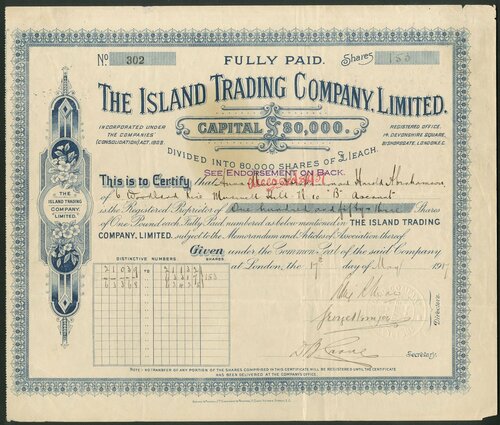 No 302 FULLY PAID. Shares 153
THE ISLAND TRADING COMPANY, LIMITED.
INCORPORATED UNDER THE COMPANIES' (CONSOLIDATION) ACT, 1908.
CAPITAL £80,000.
REGISTERED OFFICE, 14, DEVONSHIRE SQUARE, BISHOPSGATE, LONDON, E.C.
DIVIDED INTO 80,000 SHARES OF £1 EACH.
SEE ENDORSEMENT ON BACK.
This is to Certify that and Harold Abrahamson
of 6 Woodland Rise Muswell Hill N 10 "B" Account
is the Registered Proprietor of One hundred and fifty three Shares
of One Pound each Fully Paid numbered as below mentioned in THE ISLAND TRADING
COMPANY, LIMITED, subject to the Memorandum and Articles of Association thereof
Given under the Common Seal of the said Company
at London, the 17th day of May 1917
THE ISLAND TRADING COMPANY, LIMITED.
DISTINCTIVE NUMBERS. SHARES
TO
153
Directors.
Secretary.
NOTE.—NO TRANSFER OF ANY PORTION OF THE SHARES COMPRISED IN THIS CERTIFICATE WILL BE REGISTERED UNTIL THE CERTIFICATE
HAS BEEN DELIVERED AT THE COMPANY'S OFFICE.